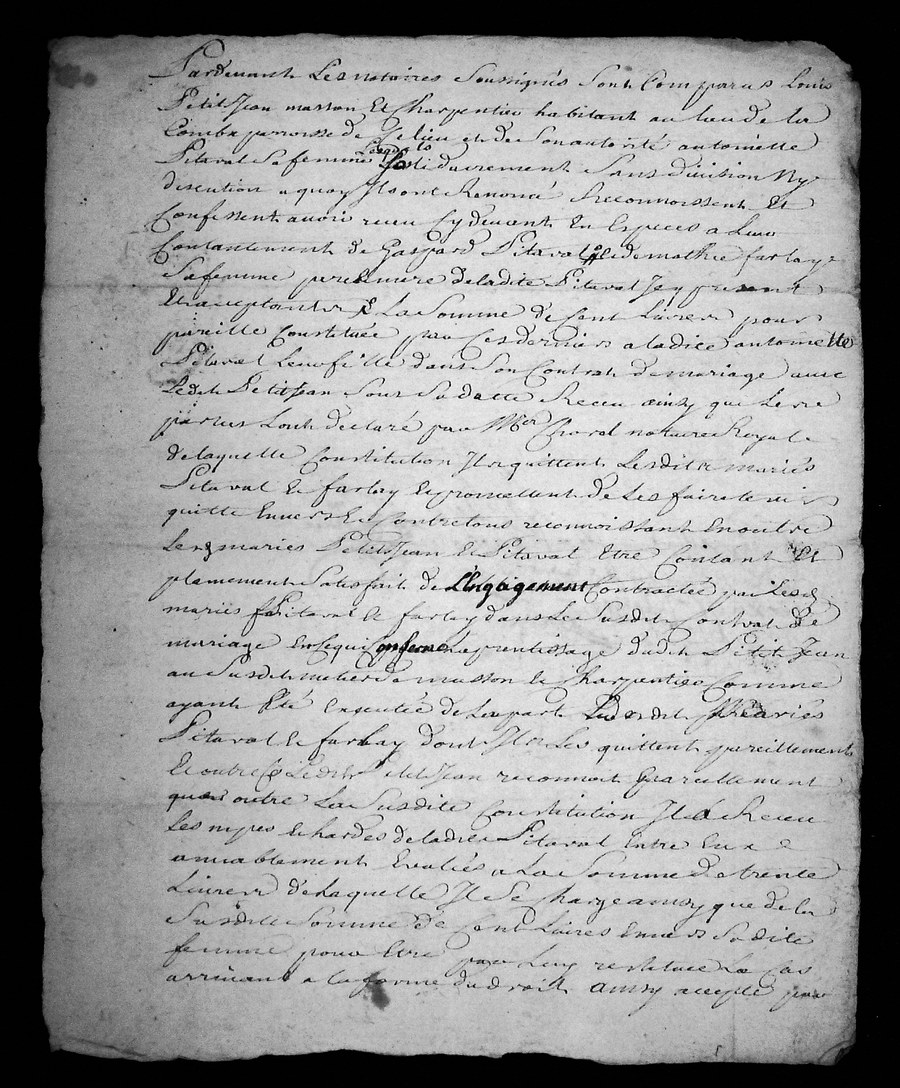 Pardevant Les notaires Soussignés Sont Comparus Louis
Petit Jean masson Et Charpentier habitant au lieu de la
Comba paroisse de et de Son autorité antoinette
Pitaval Sa femme Lesquels Solidairement Sans division Ny
discution a quoy Ils ont Renoncé Reconnoissent Et
Confessent avoir receu Cy devant En Especes a Leur
Contantement de Gaspard Pitaval Et de mathie farlay
Sa femme pere Et mere de ladite Pitaval Icy present
Et acceptants La Somme de Cent Livres pour
pareille Constituée par Ces derniers a ladite antoinette
Pitaval Leur fille dans Son Contrat de mariage avec
Ledit Petit Jean Sous Sa datte Receu ainsy que Les
parties L'ont declaré par Me Chorel notaire Royal
de laquelle Constitution Ils quittent Lesdits mariés
Pitaval Et farlay Et promettent de Les faire tenir
quitte Envers Et Contre tous reconnoissant En outre
Les dts mariés Petit Jean Et Pitaval Etre Contant Et
plainement Satisfait de L'Engagement Contractée par Lesd
mariés Pitaval Et farlay dans Le Susdit Contrat de
mariage En Ce qui Conserne L'aprentissage dudit Petit Jean
au Susdit metier de masson Et Charpentier Comme
ayant Eté Executée de La part Lesdits Mariés
Pitaval Et farlay dont Ils Les quittent pareillement
Et outre Ce Ledit Petit Jean reconnoit pareillement
qu'en outre La Susdite Constitution Il a Receu
Les nipes Et hardes de ladite Pitaval Entre Eux
amiablement Evalués a La Somme de trente
Livres de Laquelle Il Se Charge ainsy que de la
Susditte Somme de Cent Livres Envers Sadite
femme pour Etre par Luy restituée Le Cas
arrivant a la forme du droit ainsy accepté par